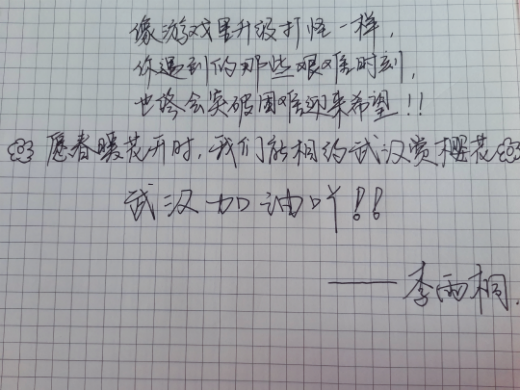 像游戏里升级打怪一样,
你遇到的那些艰难时刻,
也终会突破困难迎来希望!!
愿春暖花开时,我们能相约武汉赏樱花
武汉加油吖!!
——李雨桐.